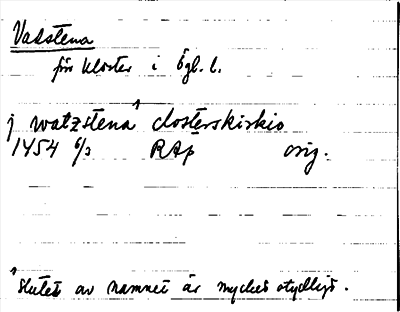 Vadstena
för kloster i Ögl. l.
j watzstena^ closterskirkio
1454 6/3 RAp orig.
^slutet av namnet är mycket otydligt.